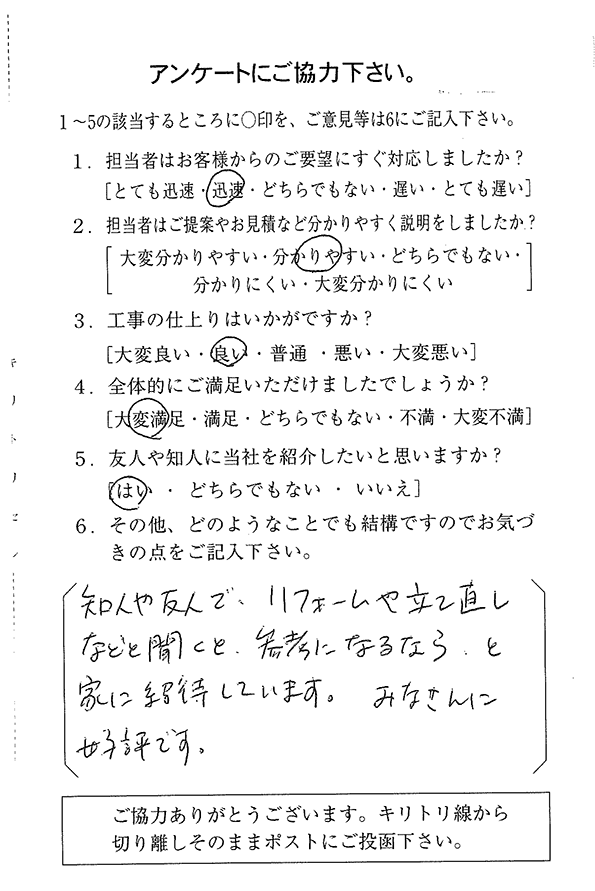 アンケートにご協力下さい。
1～5の該当するところに○印を、ご意見等は6にご記入下さい。
1．担当者はお客様からのご要望にすぐ対応しましたか？
［とても迅速・迅速・どちらでもない・遅い・とても遅い］
2．担当者はご提案やお見積など分かりやすく説明をしましたか？
［大変分かりやすい・分かりやすい・どちらでもない・
分かりにくい・大変分かりにくい］
3．工事の仕上りはいかがですか？
［大変良い・良い・普通・悪い・大変悪い］
4．全体的にご満足いただけましたでしょうか？
［大変満足・満足・どちらでもない・不満・大変不満］
5．友人や知人に当社を紹介したいと思いますか？
［はい ・ どちらでもない ・ いいえ］
6．その他、どのようなことでも結構ですのでお気づ
きの点をご記入下さい。
知人や友人で、リフォームや立て直し
などと聞くと、参考になるなら、と
家に招待しています。 みなさんに
好評です。
ご協力ありがとうございます。キリトリ線から
切り離しそのままポストにご投函下さい。